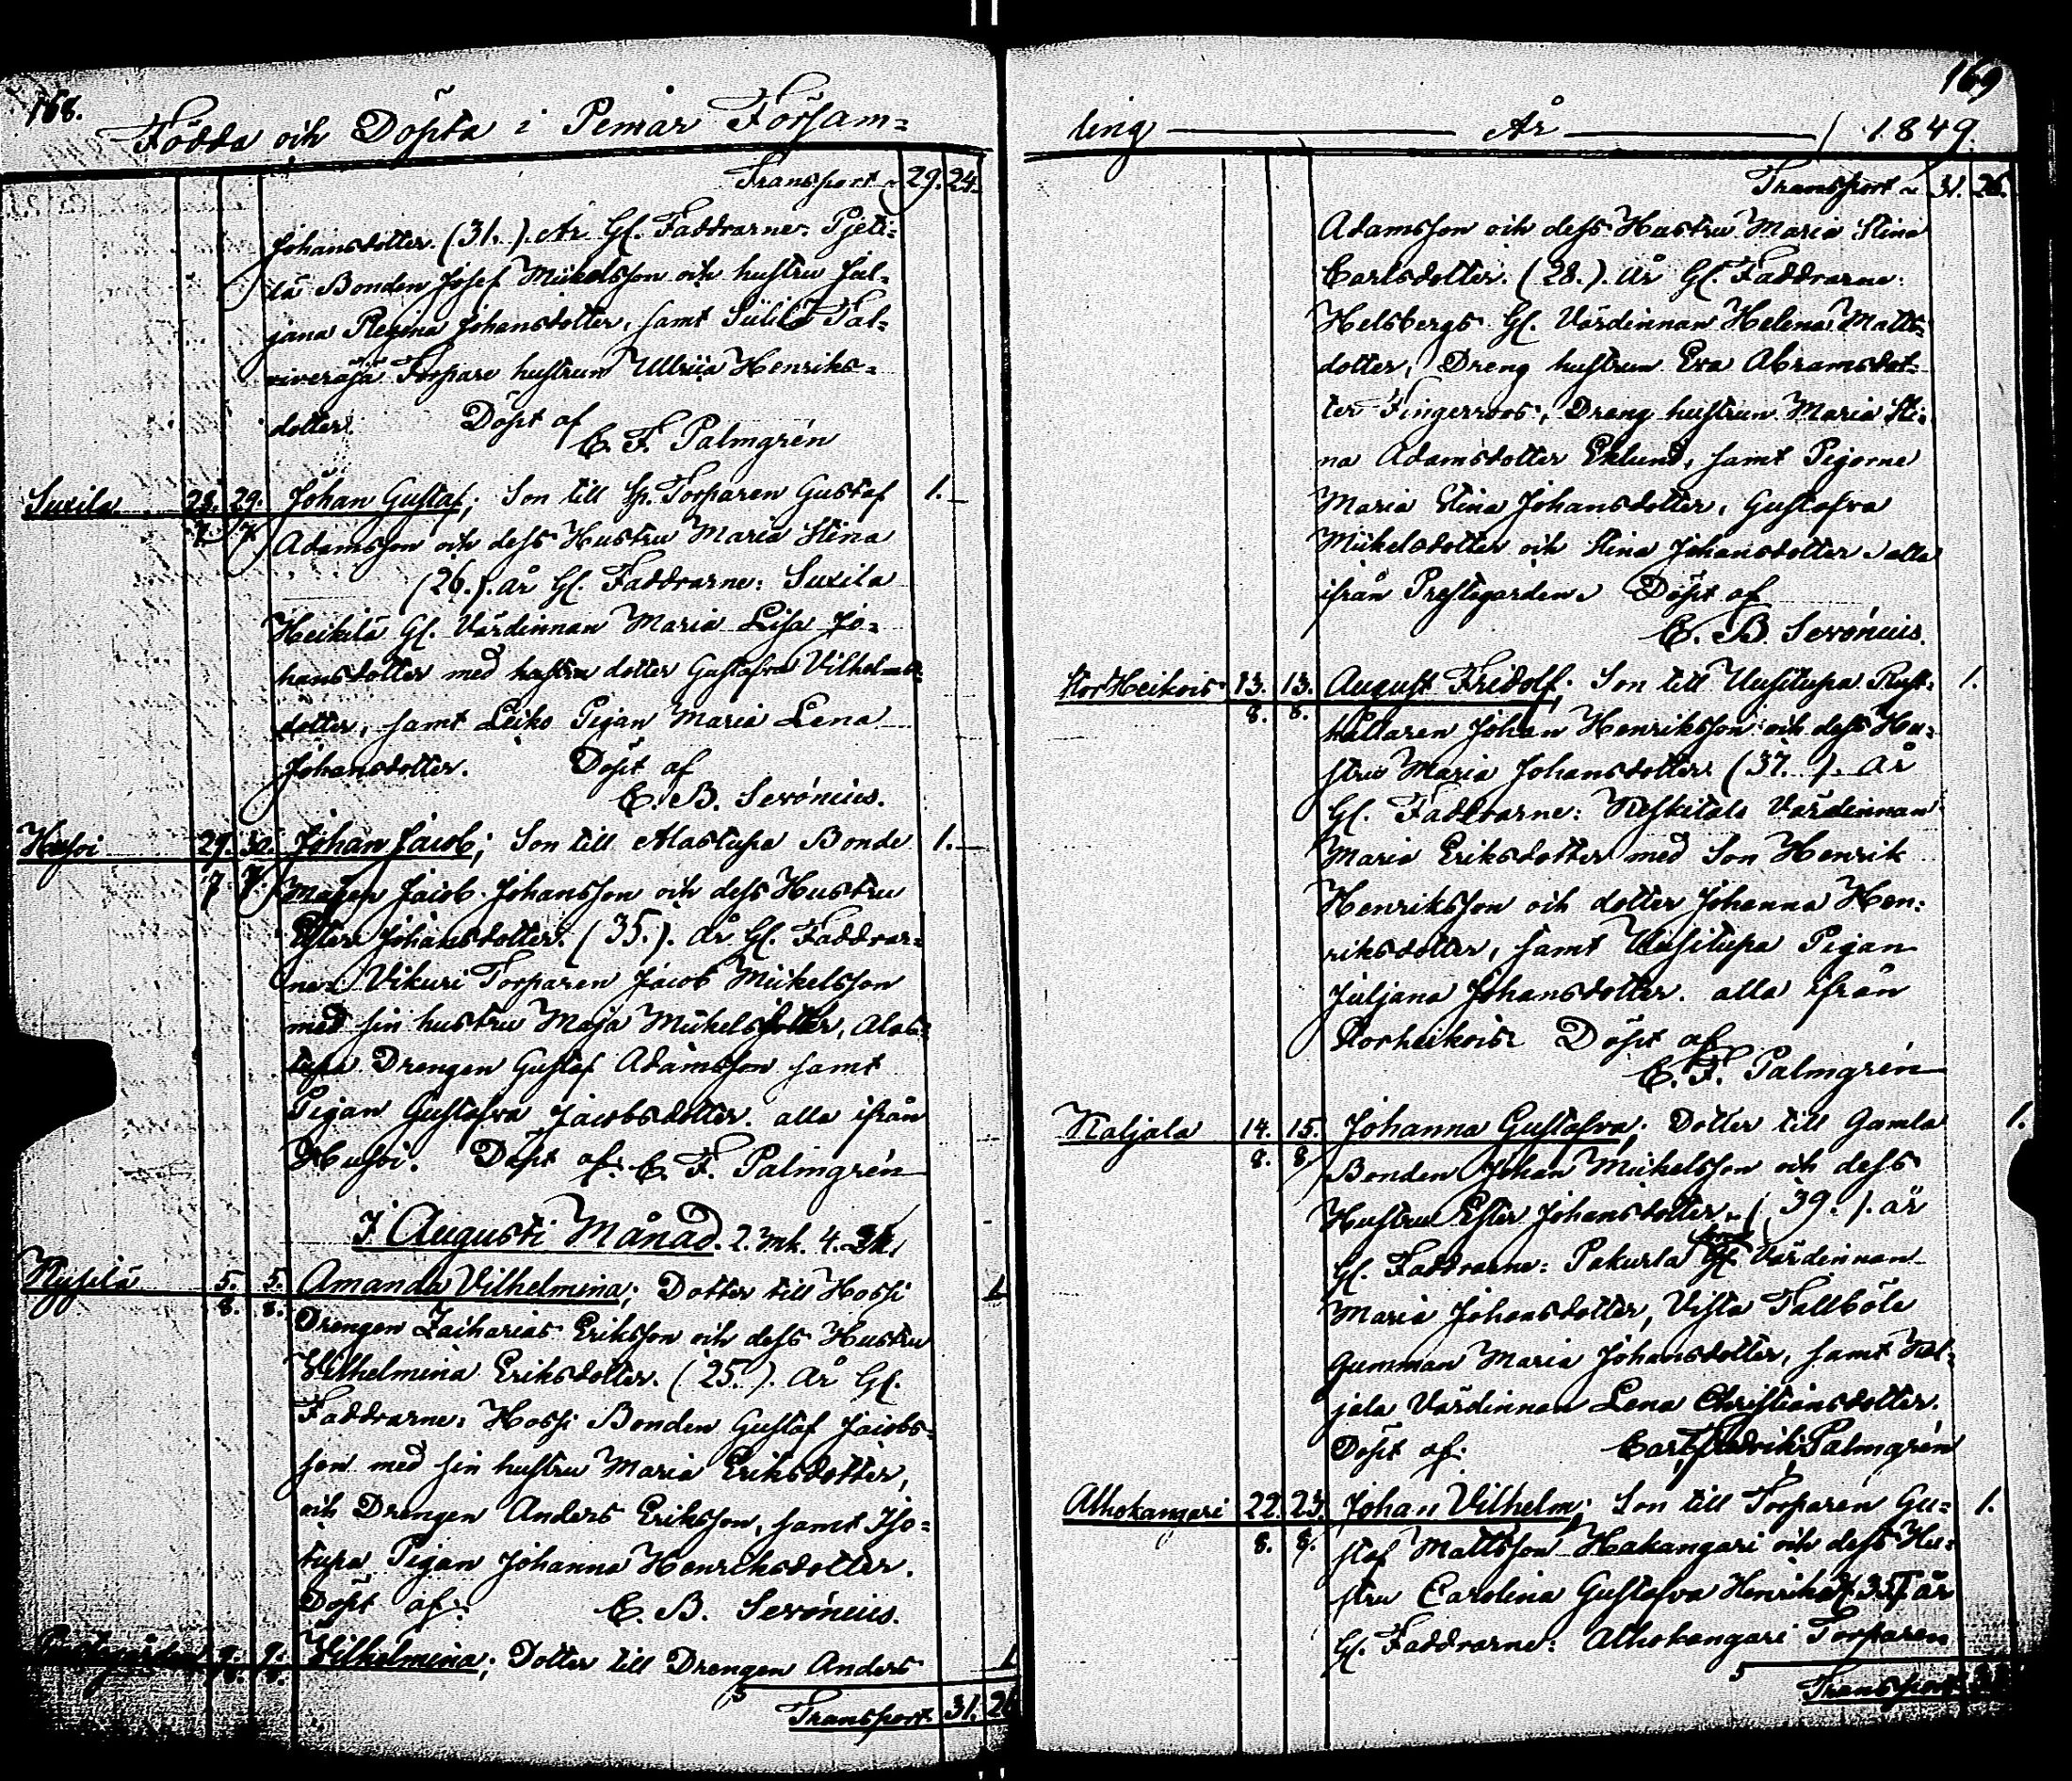 168.
Födda och Döpta i Pemar Försam=
Transport 29. 24.
Johansdotter. (31.). År Gl. Faddrarne: Pjeti=
lä Bonden Josef Mickelsson och hustru Jul=
jana Regina Johansdotter, samt Tal=
Torpare hustrun Ulrica Henriks=
dotter. Döpt af
C. F. Palmgrén
Suxila 28. 29. Johan Gustaf; Son till Sp. Torparen Gustaf 1.
7. 7. Adamsson och dess Hustru Maria Stina
(26.). år Gl. Faddrarne: Suxila
Heikilä Gl. Värdinnan Maria Lisa Jo=
hansdotter med hustru dotter Gustafva Vilhelms=
dotter, samt Leiko Pigan Maria Lena
Johansdotter. Döpt af
C. B. Serónius.
Huson 29. 30. Johan Jacob; Son till Alastupa Bonde 1.
7 7. Jacob Johansson och dess Hustru
Ester Johansdotter. (35.). år Gl. Faddrar=
ne: Vikuri Torparen Jacob Mickelsson
med sin hustru Maja Mickelsdotter, Alas=
tupa Drengen Gustaf Adamsson samt
Pigan Gustafva Jacobsdotter. alla ifrån
Döpt af: C. F. Palmgrén
I Augusti Månad. 2. mk. 4.
5. 5. Amanda Vilhelmina; Dotter till Hossi 1.
8. 8. Drengen Zacharias Eriksson och dess Hustru
Vilhelmina Eriksdotter. (25.). År Gl.
Faddrarne: Hossi Bonden Gustaf Jacobs=
son med sin hustru Maria Eriksdotter,
och Drengen Anders Eriksson, samt Iso=
tupa Pigan Johanna Henriksdotter.
Döpt af: C. B. Serónius.
9. 9. Vilhelmina; Dotter till Drengen Anders 1
8. 8.
5
Transport 31. 26
169
ling År 1849.
Transport 31. 26.
Adamsson och dess Hustru Maria Stina
Carlsdotter. (28.). år Gl. Faddrarne:
Helsbergs Gl. Värdinnan Helena Matts=
dotter, Dreng hustrun Eva Abramsdot=
ter Fingerroos, Dreng hustrun Maria Sti=
na Adamsdotter Eklund, samt Pigorne
Maria Stina Johansdotter, Gustafva
Mickelsdotter och Stina Johansdotter alla
ifrån Prestgården. Döpt af
C. B. Serónius.
StorHeikois 13. 13. August Fridolf; Son till Uusitupa Rust= 1.
8. 8. hållaren Johan Henriksson och dess Hu=
stru Maria Johansdotter (37.). År
Gl. Faddrarne: Keskitalo Värdinnan
Maria Eriksdotter med Son Henrik
Henriksson och dotter Johanna Hen=
riksdotter, samt Uusitupa Pigan
Juljana Johansdotter. alla ifrån
Storheikois. Döpt af
C. F. Palmgrén
Naljala 14. 15. Johanna Gustafva; Dotter till Gamla 1.
8. 8. Bonden Johan Mickelsson och dess
Hustru Ester Johansdotter. (39.). år
Gl. Faddrarne: Pakurla Gl. Värdinnan
Maria Johansdotter, Vista Tallböle
Gumman Maria Johansdotter, samt Nal=
jala Värdinnan Lena Christiansdotter.
Döpt af: Carl Fredrik Palmgrén
Alhokangari 22. 23. Johan Vilhelm; Son till Torparen Gu= 1.
8. 8. staf Mattsson Hakangari och dess Hu=
stru Carolina Gustafva Henriksd (35) år
Gl. Faddrarne: Alhokangari Torparen
5
Transport